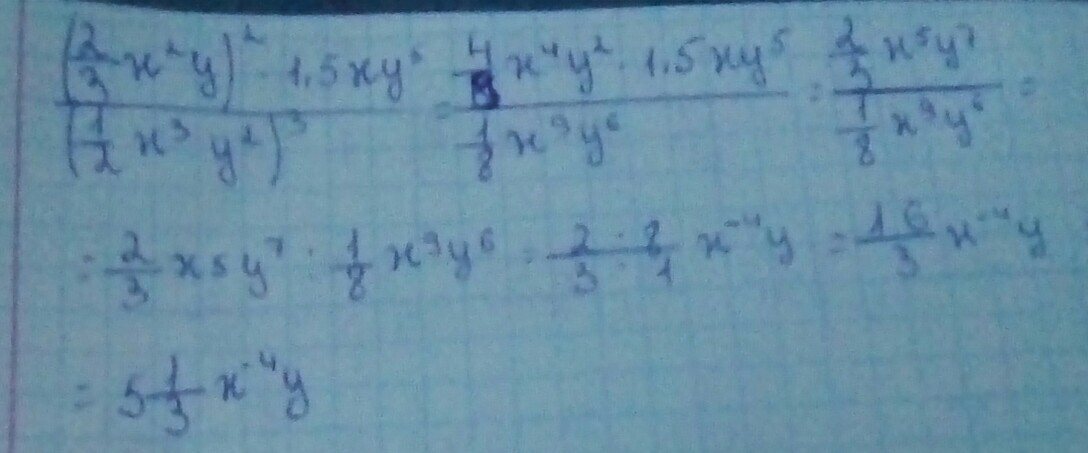 (2/3 x²y)² · 1.5xy⁵ / (1/2 x³ y²)³ = 4/9 x⁴y² · 1.5xy⁵ / 1/8 x⁹y⁶ = 2/3 x⁵y⁷ / 1/8 x⁹y⁶ =
= 2/3 x⁵y⁷ : 1/8 x⁹y⁶ = 2·8/3·1 x⁻⁴y = 16/3 x⁻⁴y
= 5 1/3 x⁻⁴y